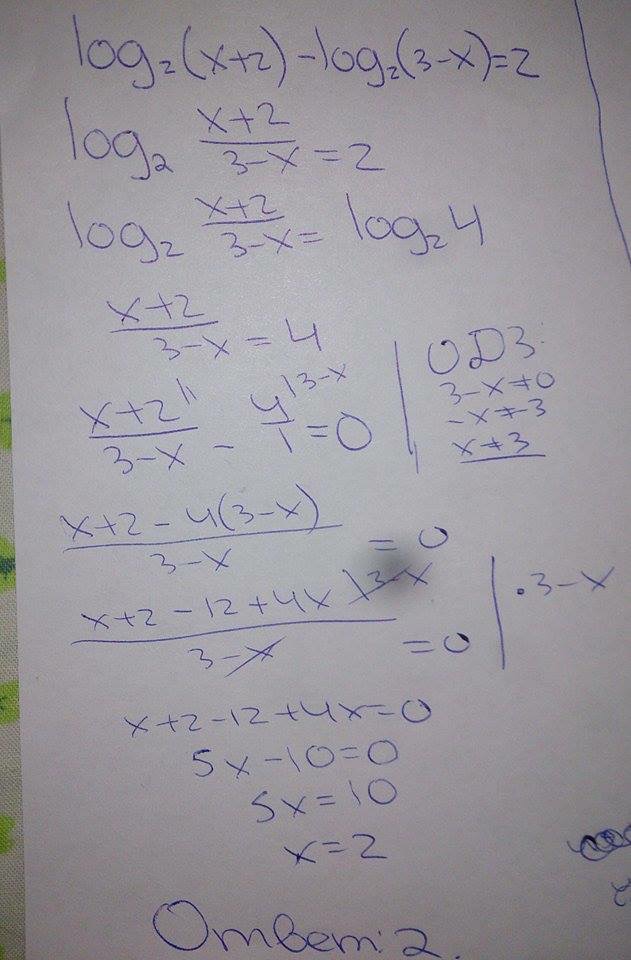 log₂(x+2)-log₂(3-x)=2
log₂ (x+2)/(3-x) = 2
log₂ (x+2)/(3-x) = log₂4
(x+2)/(3-x) = 4
(x+2)/(3-x) ^|1 - 4/1 ^|3-x = 0
ОДЗ:
3-x≠0
-x≠-3
x≠3
(x+2-4(3-x))/(3-x) = 0
(x+2-12+4x)/(3-x) ^|3-x = 0 | ·3-x
x+2-12+4x=0
5x-10=0
5x=10
x=2
Ответ: 2.